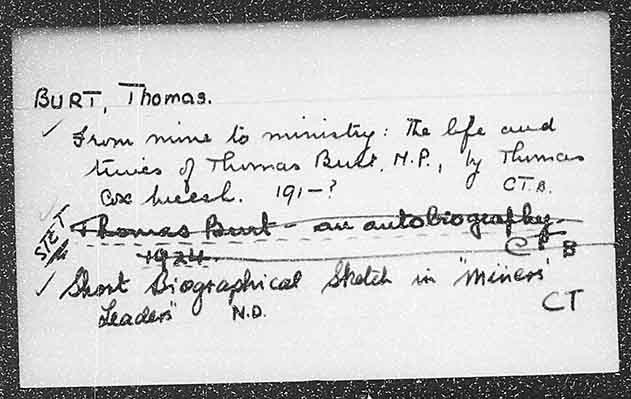 BURT, Thomas.
✓ From mine to ministry: the life and
times of Thomas Burt, M.P., by Thomas
Cox Meech. 191-? CT.B.
STET Thomas Burt - an autobiography.
1924. CT B
✓ Short Biographical Sketch in "Miners'
Leaders" N.D. CT